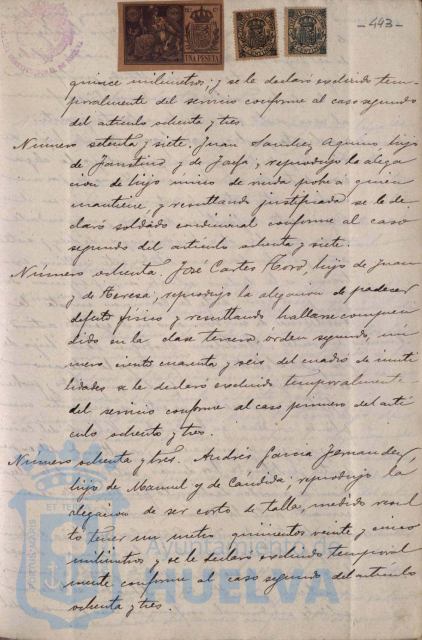 -443-
UNA PESETA
quince milimetros, y se le declaró excluido tem-
poralmente del servicio conforme al caso segundo
del articulo ochenta y tres.
Número setenta y siete. Juan Sanchez Aquino, hijo
de Faustino y de Josefa, reprodujo la alega
cion de hijo único de viuda pobre á quien
mantiene, y resultando justificada se le de-
claró soldado condicional conforme al caso
segundo del articulo ochenta y siete.
Número ochenta. José Cortes Toro, hijo de Juan
y de Teresa, reprodujo la alegacion de padecer
defecto físico y resultando hallarse compren
dido en la clase tercera, órden segundo, nú
mero ciento cuarenta y seis del cuadro de inuti
lidades se le declaró excluido temporalmente
del servicio conforme al caso primero del artí
culo ochenta y tres.
Número ochenta y tres. Andrés Garcia Fernandez,
hijo de Manuel y de Cándida, reprodujo la
alegacion de ser corto de talla, medido resul
tó tener un metro quinientos veinte y cinco
milimetros y se le declaró excluido temporal
mente conforme al caso segundo del artículo
ochenta y tres.
Ayuntamiento de
HUELVA